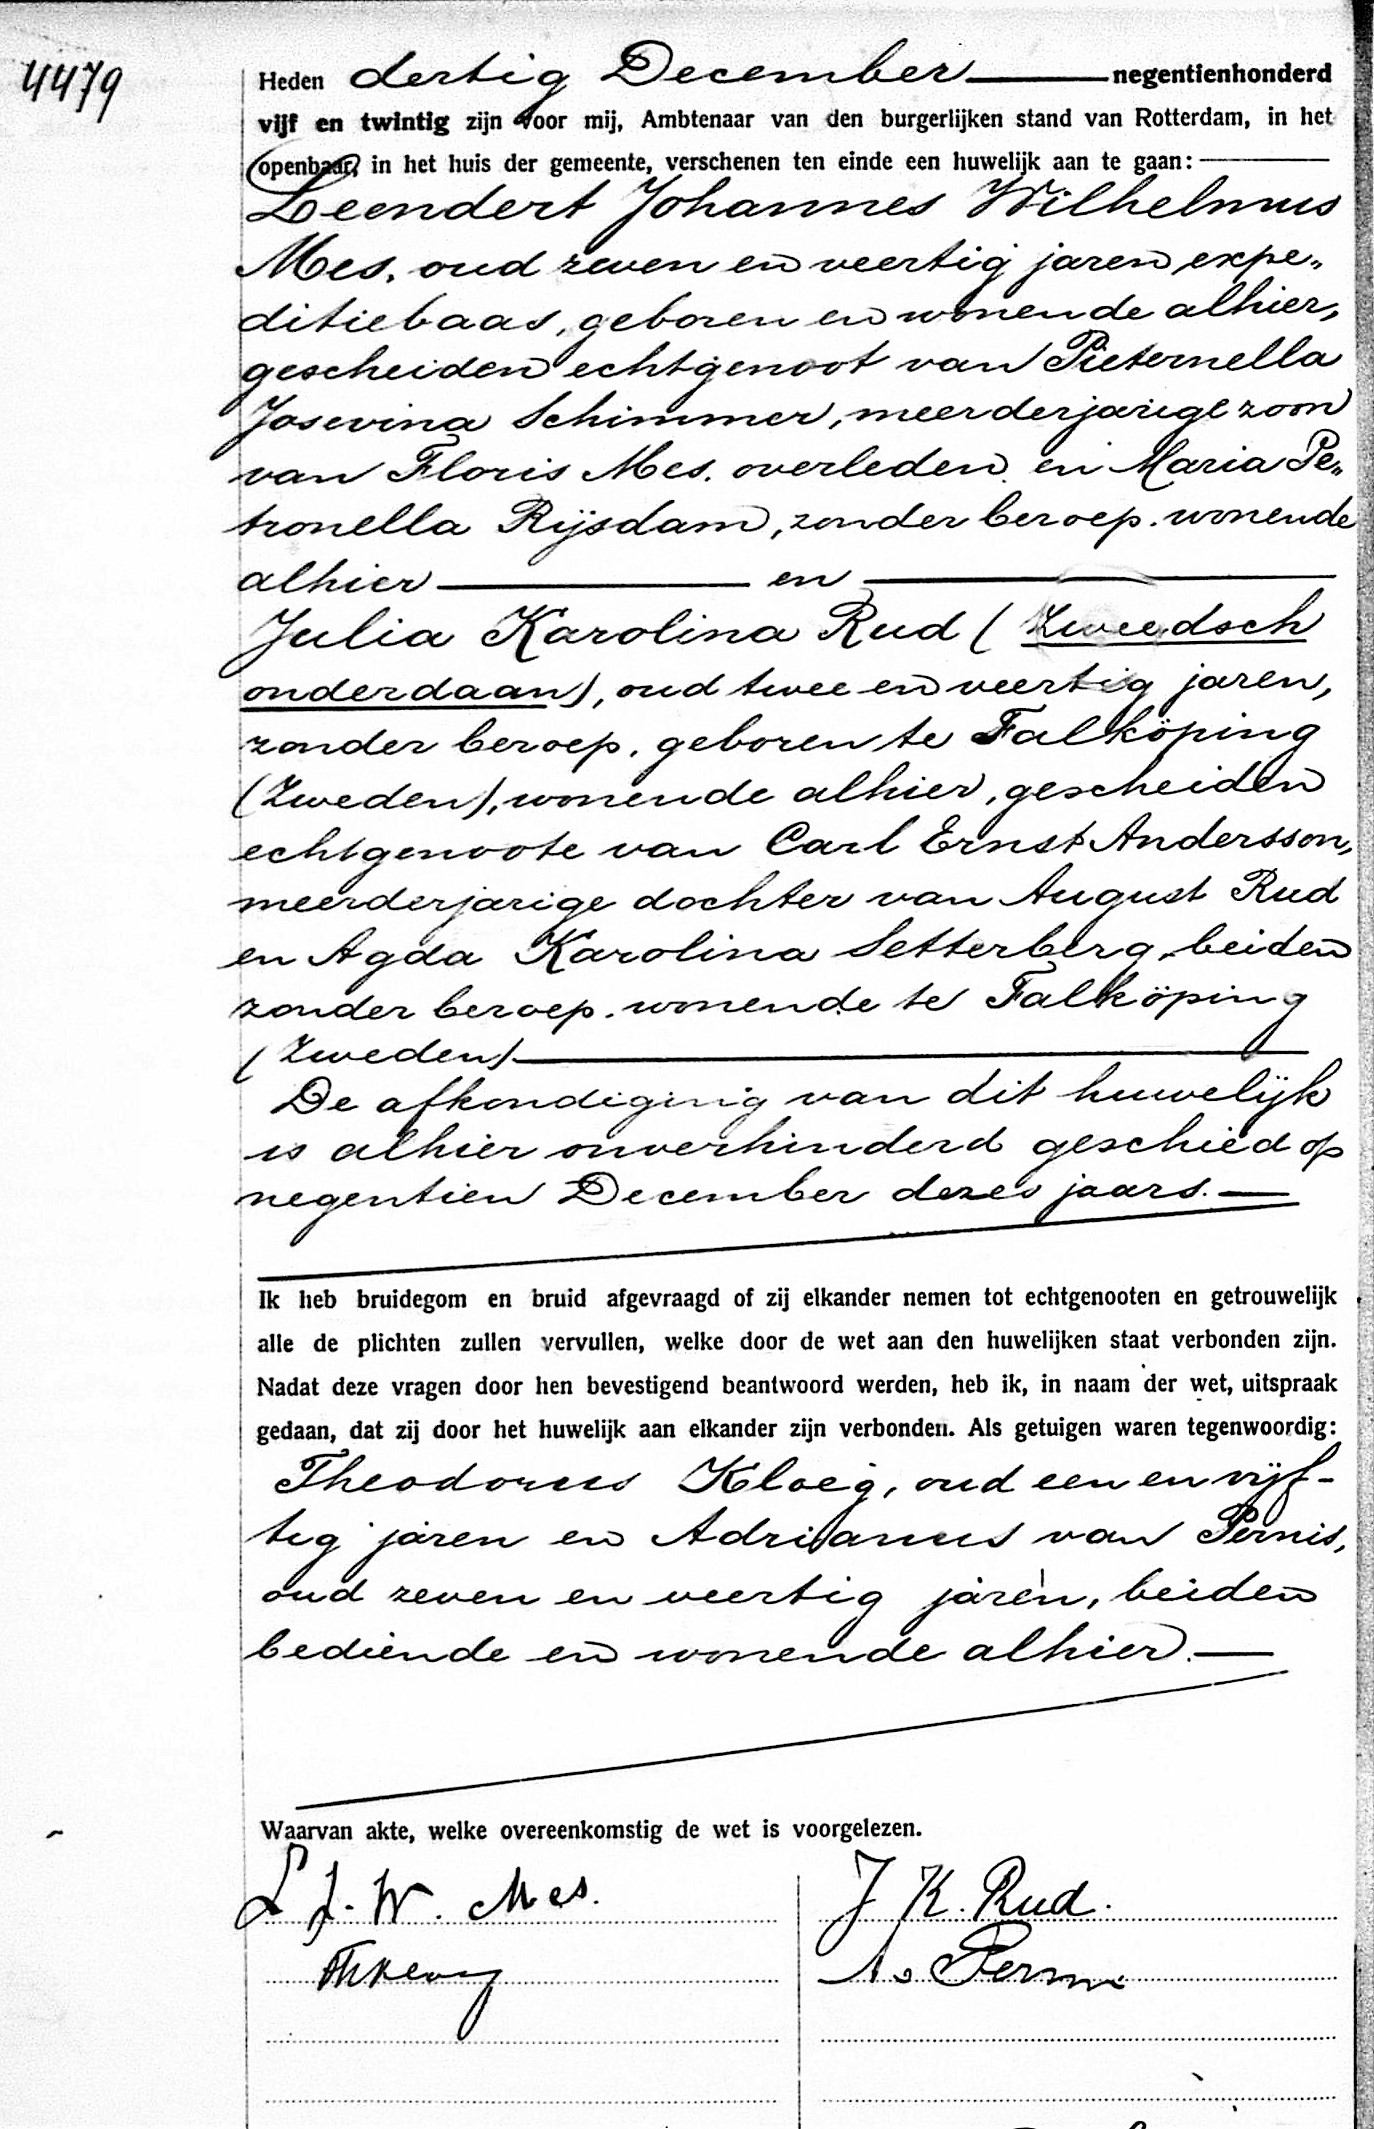 4479
Heden dertig December negentienhonderd
vijf en twintig zijn voor mij, Ambtenaar van den burgerlijken stand van Rotterdam, in het
openbaar, in het huis der gemeente, verschenen ten einde een huwelijk aan te gaan:
Leendert Johannes Wilhelmus
Mes, oud zeven en veertig jaren, expe„
ditiebaas, geboren en wonende alhier,
gescheiden echtgenoot van Pieternella
Josevina Schimmer, meerderjarige zoon
van Floris Mes, overleden, en Maria Pe„
tronella Rijsdam, zonder beroep, wonende
alhier en
Julia Karolina Rud (Zweedsch
onderdaan), oud twee en veertig jaren,
zonder beroep, geboren te Falköping
(Zweden), wonende alhier, gescheiden
echtgenoote van Carl Ernst Andersson,
meerderjarige dochter van August Rud
en Agda Karolina Setterberg, beiden
zonder beroep, wonende te Falköping
(Zweden)
De afkondiging van dit huwelijk
is alhier onverhinderd geschied op
negentien December dezes jaars.
Ik heb bruidegom en bruid afgevraagd of zij elkander nemen tot echtgenooten en getrouwelijk
alle de plichten zullen vervullen, welke door de wet aan den huwelijken staat verbonden zijn.
Nadat deze vragen door hen bevestigend beantwoord werden, heb ik, in naam der wet, uitspraak
gedaan, dat zij door het huwelijk aan elkander zijn verbonden. Als getuigen waren tegenwoordig:
Theodorus Kloeg, oud een en vijf-
tig jaren en Adrianus van Pernis,
oud zeven en veertig jaren, beiden
bediende en wonende alhier.
Waarvan akte, welke overeenkomstig de wet is voorgelezen.
L J. W. Mes.
J K. Rud.